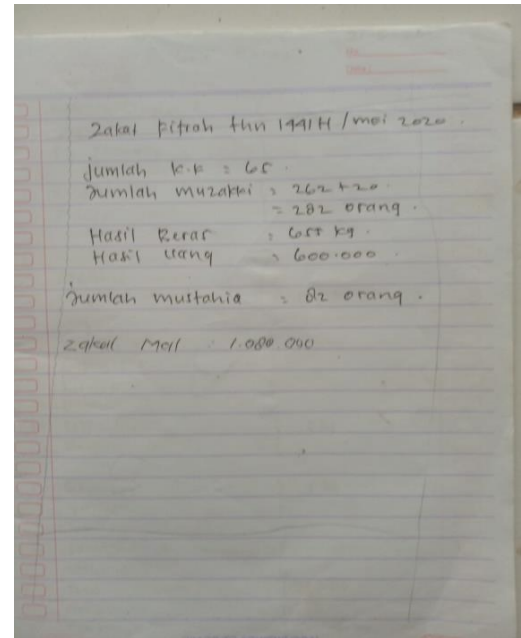 Zakat Fitrah thn 1441 H / mei 2020.
jumlah K.K = 65.
Jumlah muzakki = 262 + 20
= 282 orang.
Hasil Beras : 655 kg.
Hasil uang : 600.000
Jumlah mustahiq = 82 orang.
Zakat Mall : 1.080.000